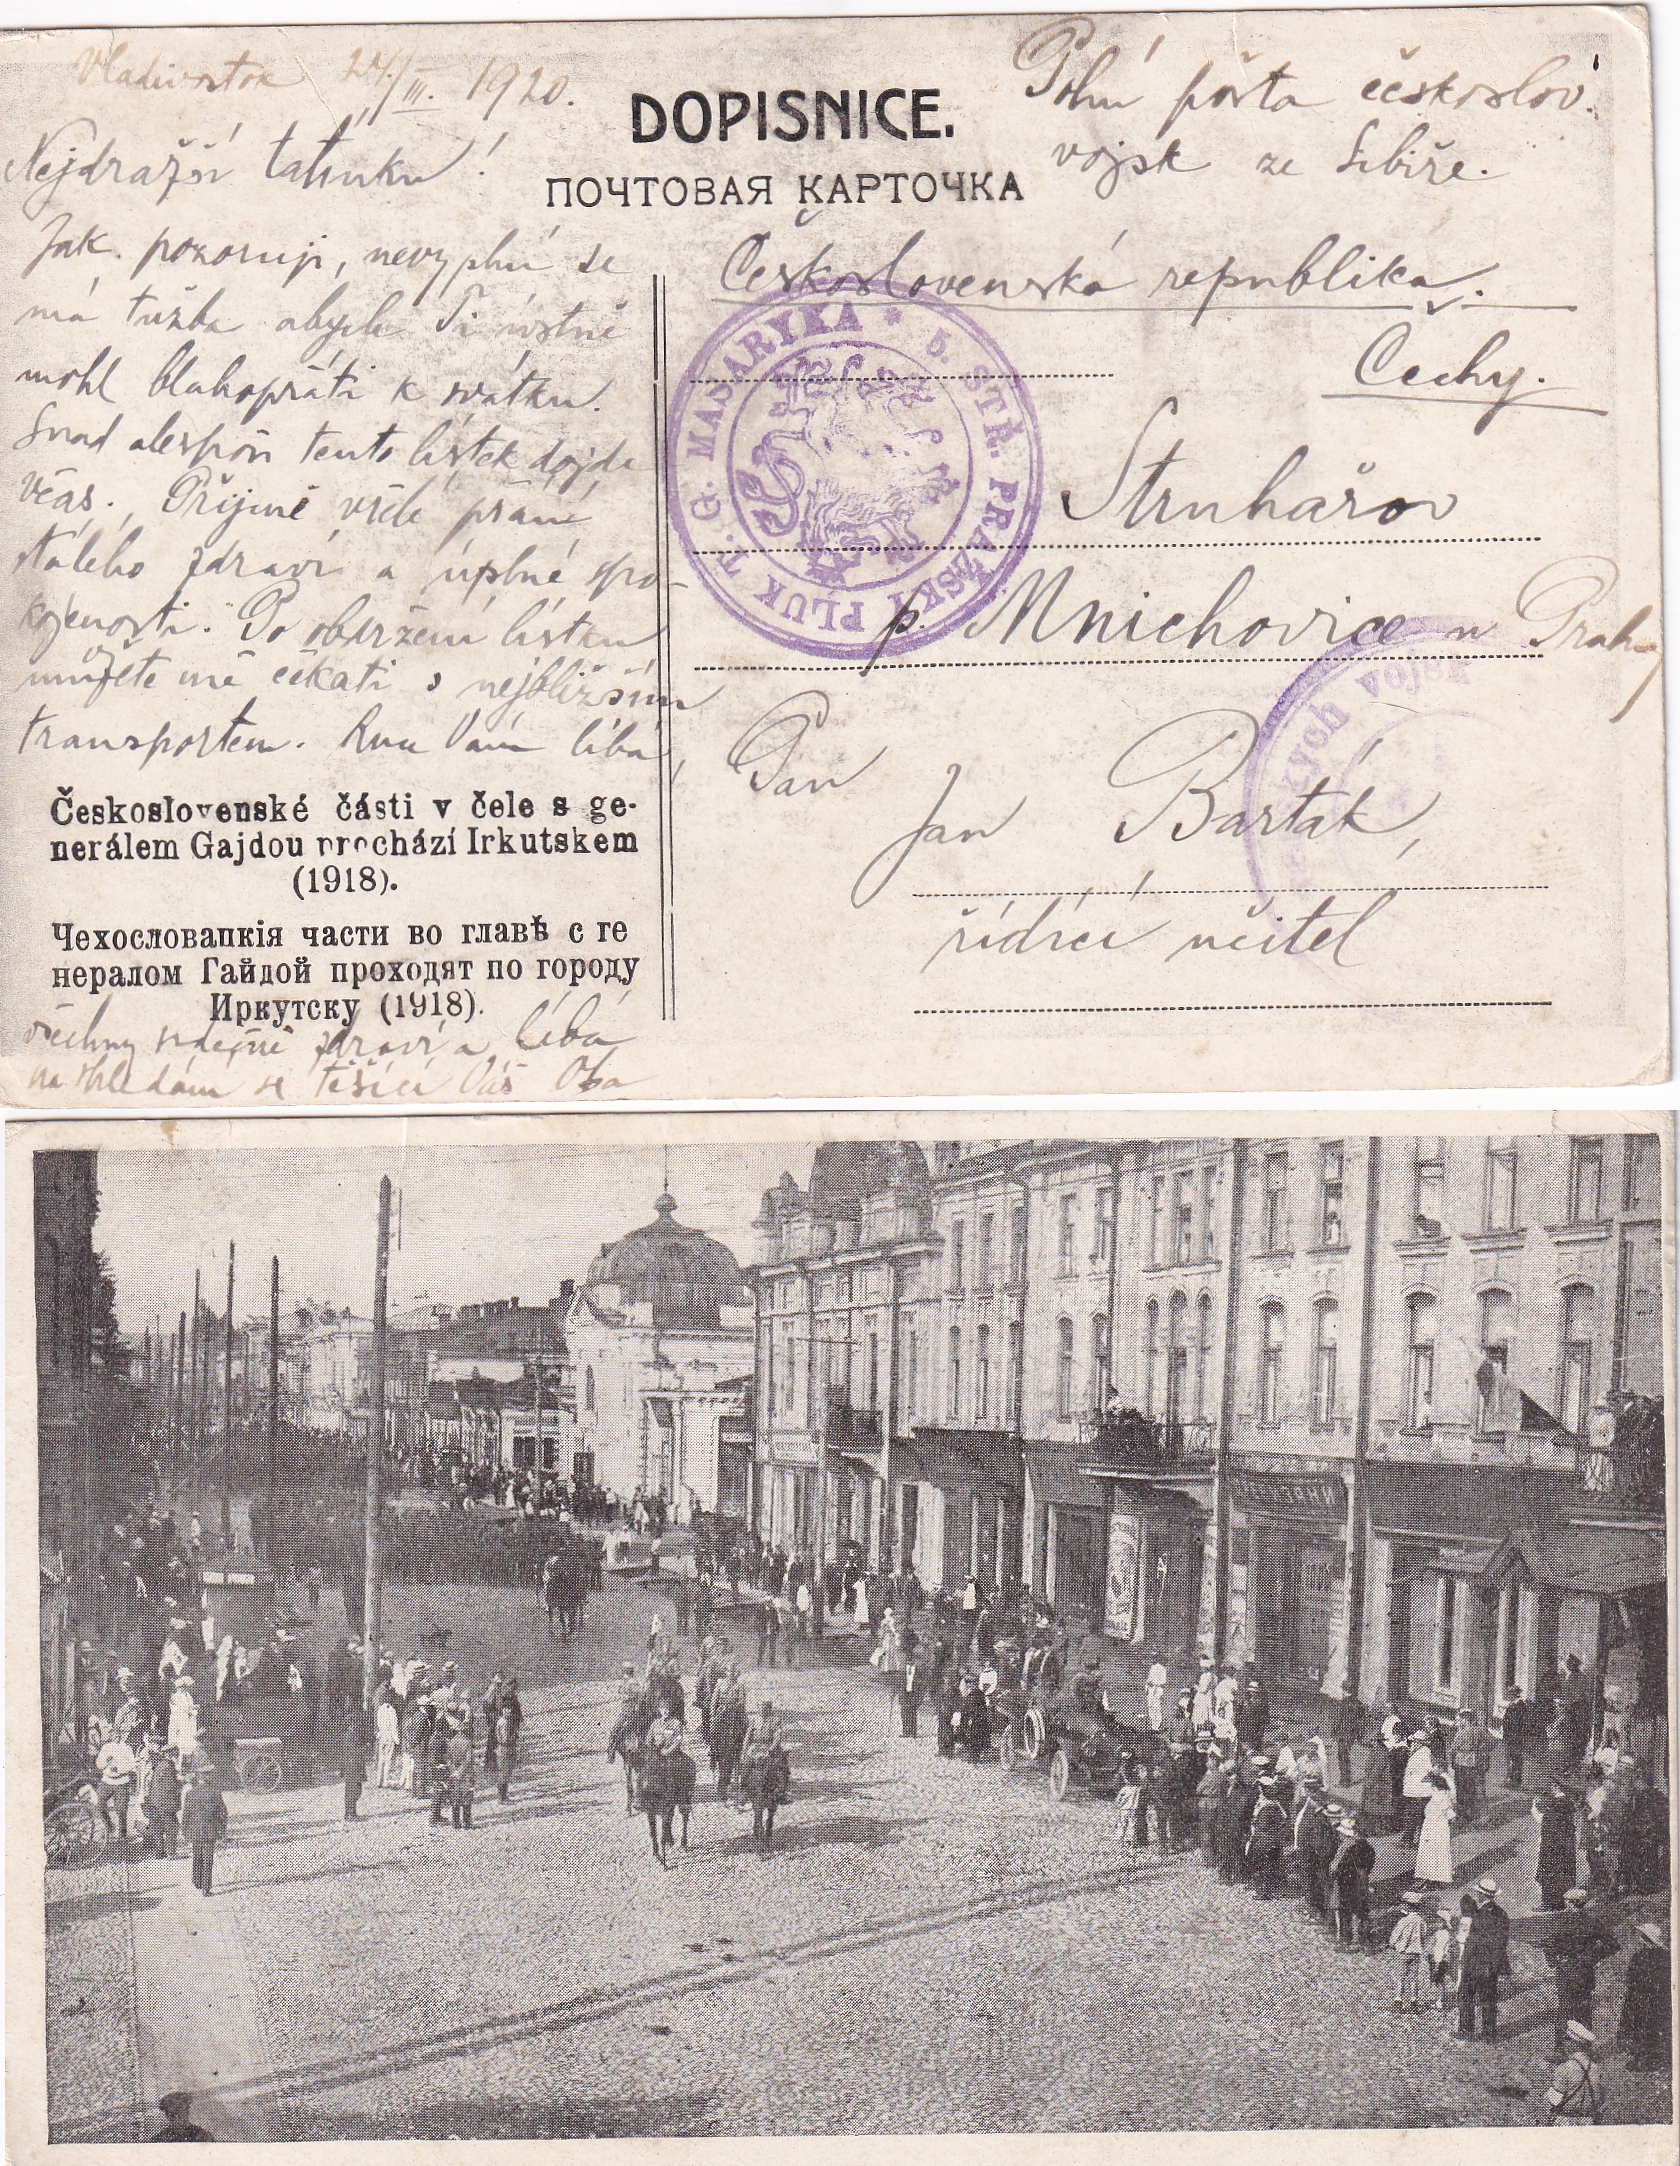 Vladivostok 24./III. 1920.
Nejdražší tatínku!
Jak pozoruji, nevyplní se
má tužba abych Ti ústně
mohl blahopřáti k svátku.
Snad alespoň tento lístek dojde
včas. Přijmi vřelé přání
stálého zdraví a úplné spo-
kojenosti. Po obdržení lístku
můžete mě čekati s nejbližším
transportem. Ruce Vám líbá,
Československé části v čele s ge-
nerálem Gajdou prochází Irkutskem
(1918).
Чехословацкія части во главѣ с ге
нералом Гайдой проходят по городу
Иркутску (1918).
všechny srdečně zdraví a líbá
na shledání se těšící Váš Ota
DOPISNICE.
ПОЧТОВАЯ КАРТОЧКА
Polní pošta českoslov.
vojsk ze Sibiře.
Československá republika.
Čechy.
5. STŘ. PRAŽSKÝ PLUK T. G. MASARYKA *
Struhařov
p. Mnichovice u Prahy
ských vojsk
Pan
Jan Barták,
řídící učitel